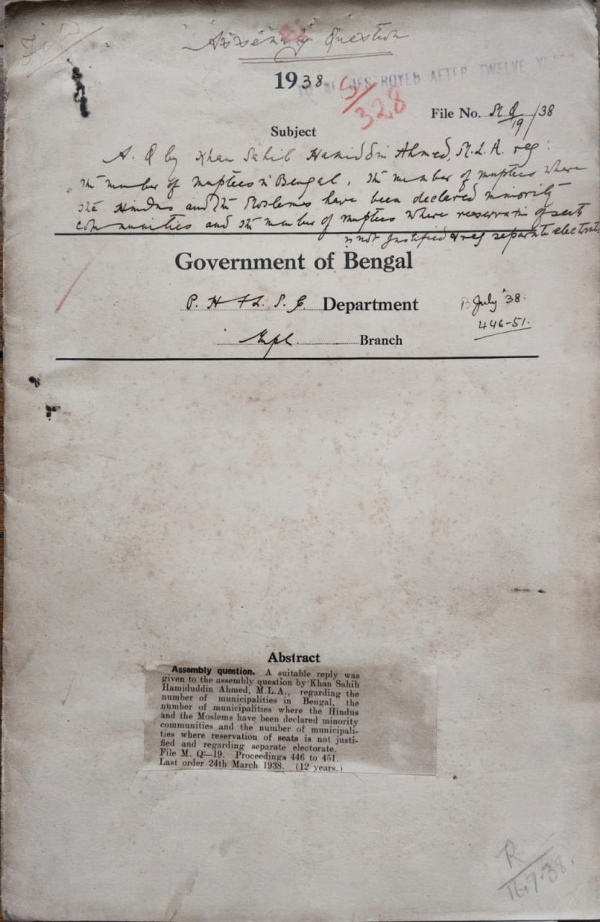 Assembly Question
1938
5/328
TO BE DESTROYED AFTER TWELVE YEARS
File No. M. Q/19/38
Subject
A. Q by Khan Sahib Hamiduddin Ahmed M.L.A. reg:
the number of muptees in Bengal, the number of muptees where
the Hindus and the Moslems have been declared minority
communities and the number of muptees where reservation of seat
is not justified & reg separate electorate
Government of Bengal
P. H & L. S. G. Department
B July '38.
446-51.
Mpl. Branch
Abstract
Assembly question. A suitable reply was
given to the assembly question by Khan Sahib
Hamiduddin Ahmed, M.L.A., regarding the
number of municipalities in Bengal, the
number of municipalities where the Hindus
and the Moslems have been declared minority
communities and the number of municipali-
ties where reservation of seats is not justi-
fied and regarding separate electorate.
File M. Q.—19. Proceedings 446 to 451.
Last order 24th March 1938. (12 years.)
R
16.7.38.